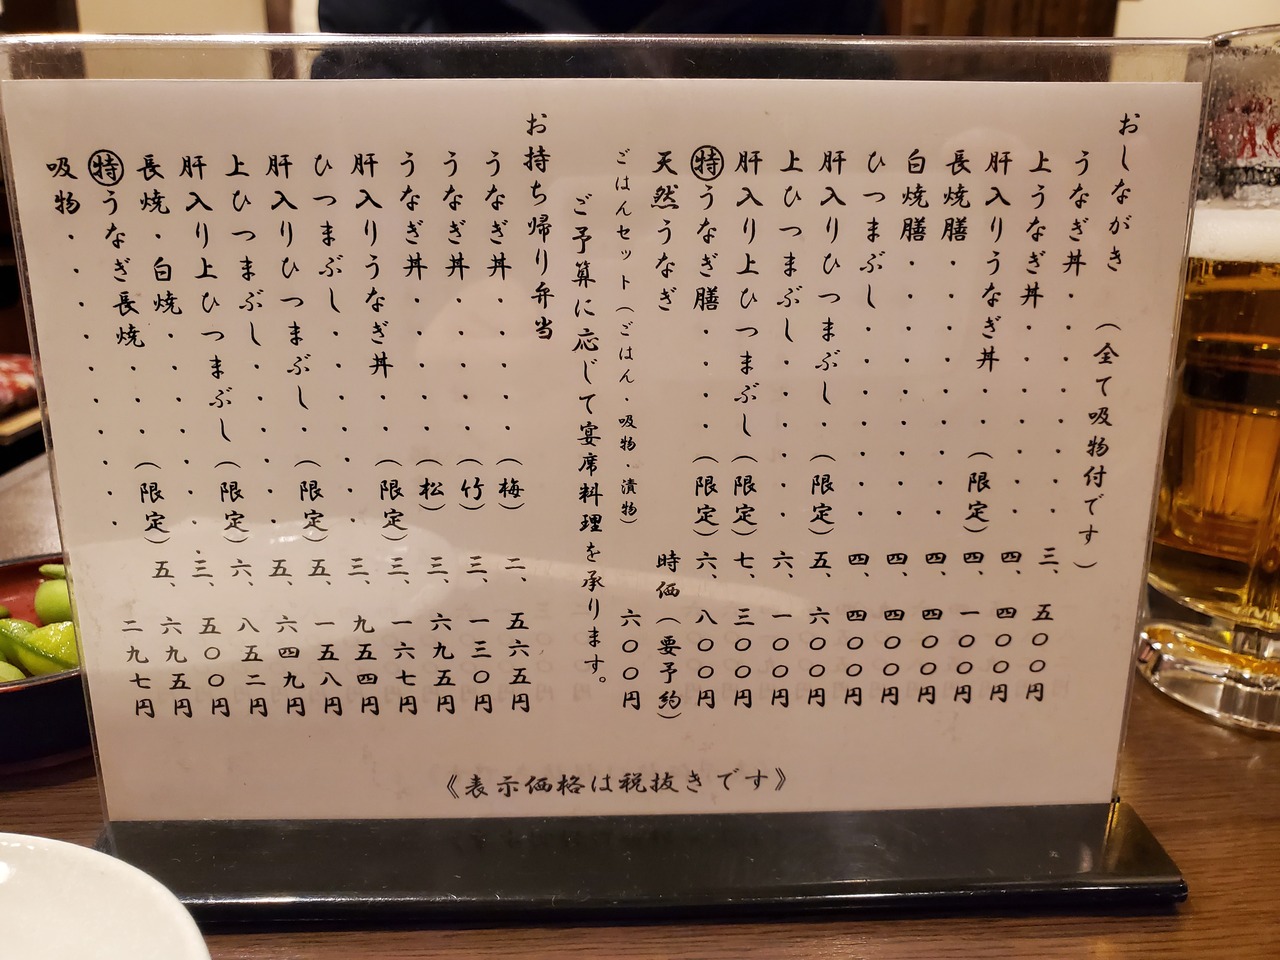 おしながき （全て吸物付です）
うなぎ丼・・・・・・・・三、五〇〇円
上うなぎ丼・・・・・・・四、四〇〇円
肝入りうなぎ丼・・（限定）四、一〇〇円
長焼膳・・・・・・・・・四、四〇〇円
白焼膳・・・・・・・・・四、四〇〇円
ひつまぶし・・・・・・・四、四〇〇円
肝入りひつまぶし・（限定）五、六〇〇円
上ひつまぶし・・・・・・六、一〇〇円
肝入り上ひつまぶし（限定）七、三〇〇円
㊕うなぎ膳・・・・（限定）六、八〇〇円
天然うなぎ 時価（要予約）
ごはんセット（ごはん・吸物・漬物） 六〇〇円
ご予算に応じて宴席料理を承ります。
お持ち帰り弁当
うなぎ丼・・・・・（梅）二、五六五円
うなぎ丼・・・・・（竹）三、一三〇円
うなぎ丼・・・・・（松）三、六九五円
肝入りうなぎ丼・・（限定）三、一六七円
ひつまぶし・・・・・・・三、九五四円
肝入りひつまぶし・（限定）五、一五八円
上ひつまぶし・・・・・・五、六四九円
肝入り上ひつまぶし（限定）六、八五二円
長焼・白焼・・・・・・・三、五〇〇円
㊕うなぎ長焼・・・（限定）五、六九五円
吸物・・・・・・・・・・二九七円
《表示価格は税抜きです》